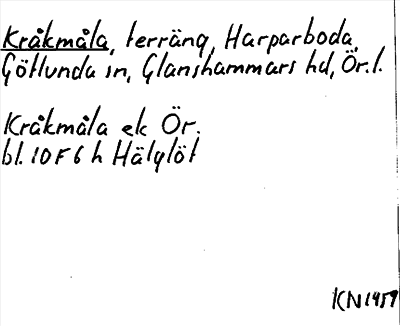 Kråkmåla, terräng, Harparboda,
Götlunda sn, Glanshammars hd, Ör. l.
Kråkmåla ek Ör.
bl. 10F6h Hälglöt
KN 1959